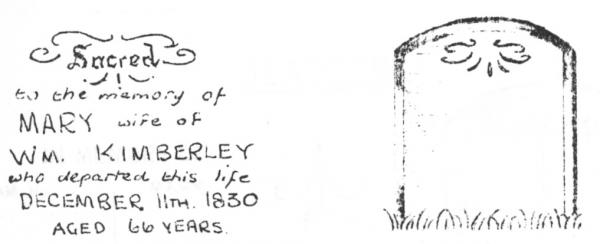 Sacred
to the memory of
MARY wife of
WM. KIMBERLEY
who departed this life
DECEMBER 11TH. 1830
AGED 66 YEARS.